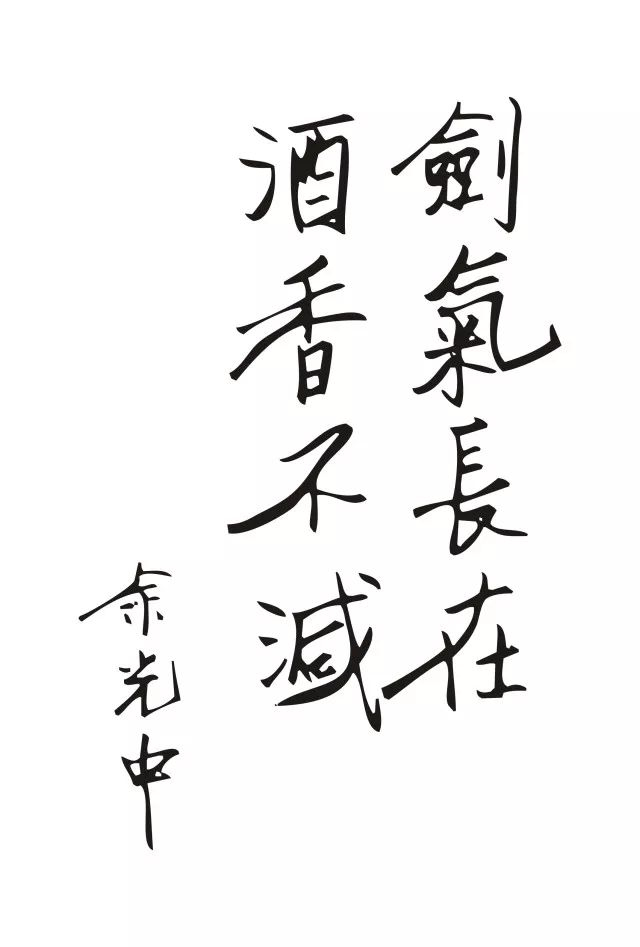 劍氣長在
酒香不減
余光中